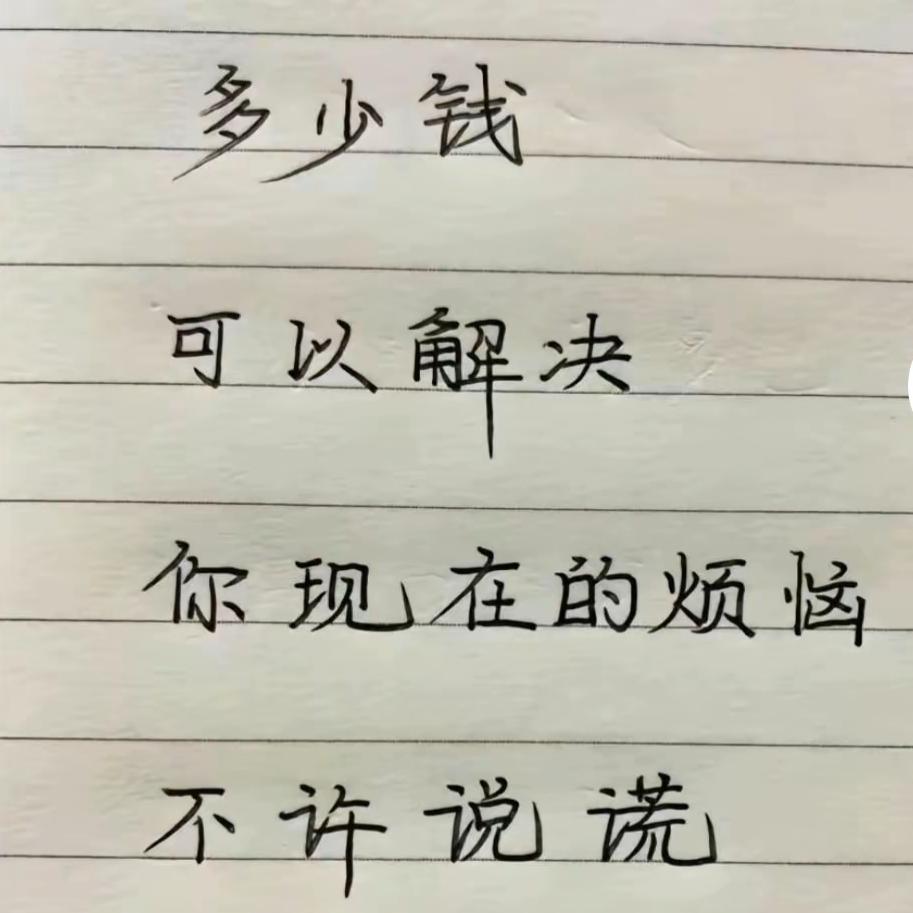 多少钱
可以解决
你现在的烦恼
不许说谎